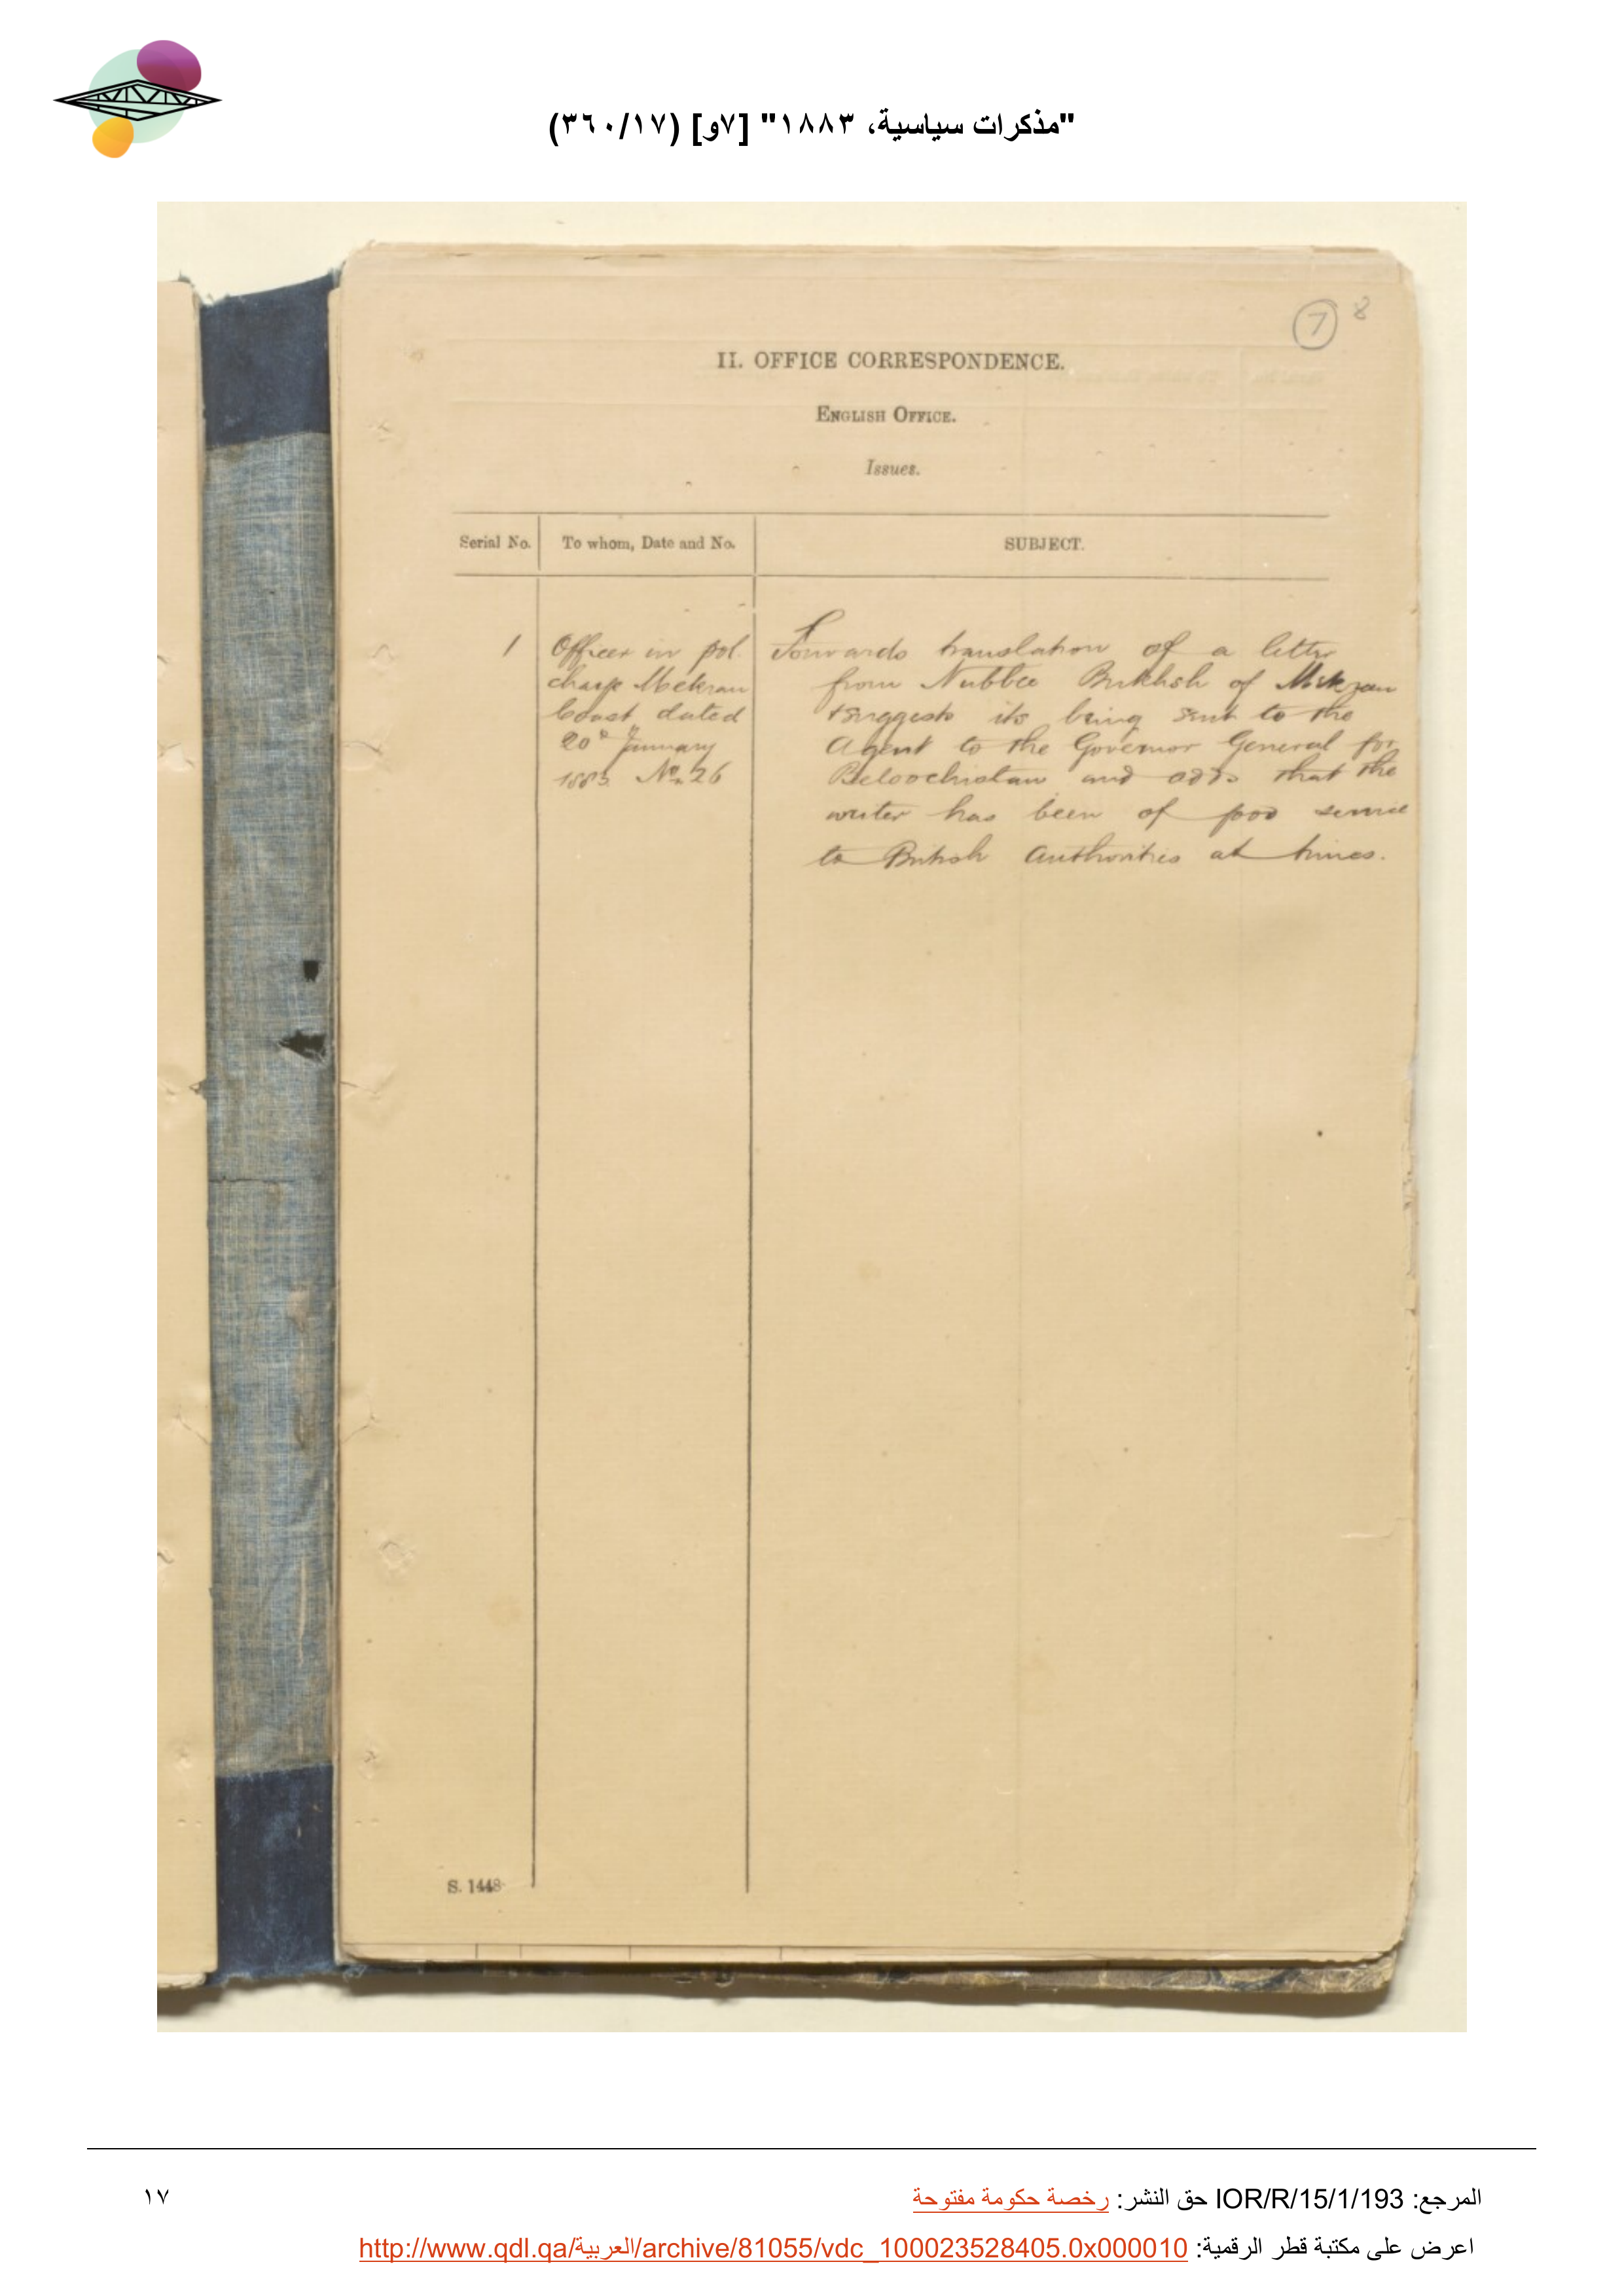 "مذكرات سياسية، ١٨٨٣" [٧و] (٣٦٠/١٧)
7 8
II. OFFICE CORRESPONDENCE.
ENGLISH OFFICE.
Issues.
Serial No. To whom, Date and No. SUBJECT.
1 Officer in pol. Forwards translation of a letter
charge Mekran from Nubbee Bukhsh of Mekran
Coast dated & suggests its being sent to the
20th January Agent to the Governor General for
1883 No. 26 Beloochistan and adds that the
writer has been of good service
to British Authorities at times.
S. 1448
المرجع: IOR/R/15/1/193 حق النشر: رخصة حكومة مفتوحة
١٧
اعرض على مكتبة قطر الرقمية: http://www.qdl.qa/العربية/archive/81055/vdc_100023528405.0x000010